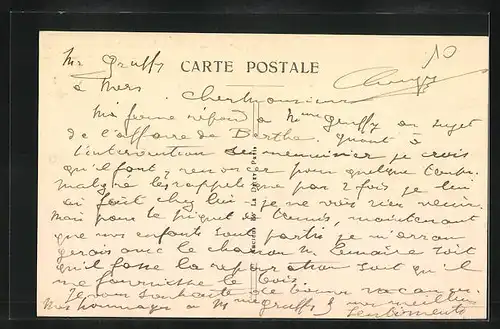 Mr Gruffy
CARTE POSTALE
10
à Mers
Cher Monsieur
Ma femme répond à Mme Gruffy au sujet
de l'affaire de Berthe. Quant à
l'intervention menuisier je crois
qu'il faut renoncer pour quelque temps.
Malgré les rappels que par 2 fois je lui
ai fait chez lui je ne vois rien venir.
Mais pour le piquet de tennis, maintenant
que nos enfants sont partis je m'arran
gerais avec le chanoin Mr Lemaire soit
qu'il fasse la réparation soit qu'il
me fournisse le bois.
Je vous souhaite de bonnes vacances.
Mes hommages à Mme Gruffy & mes meilleurs
sentiments